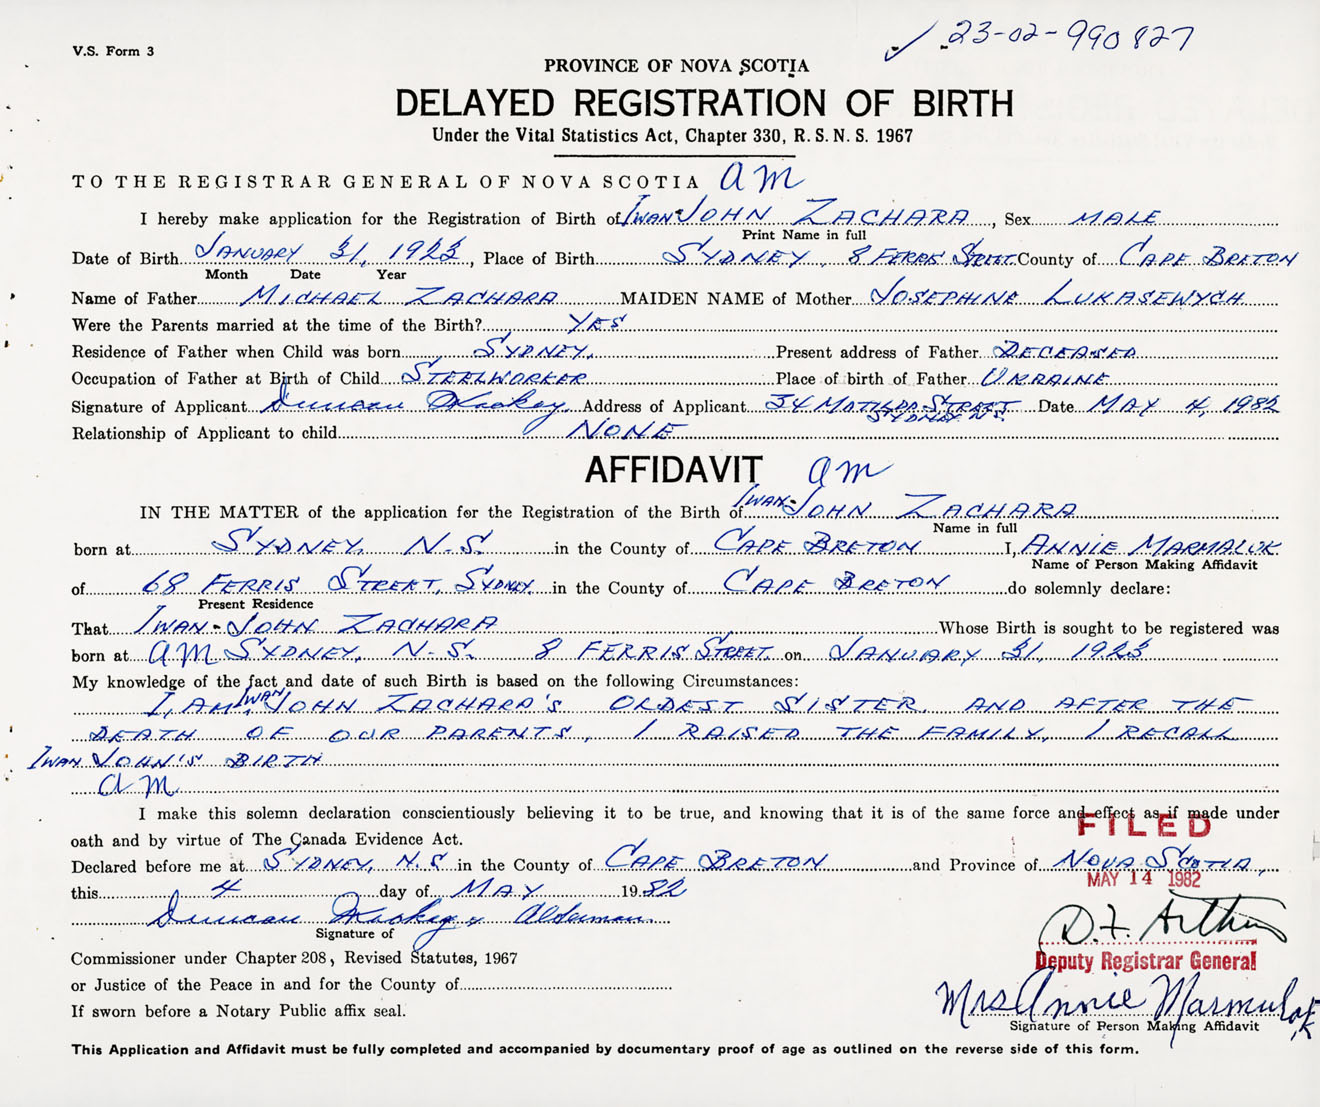 V.S. Form 3
✓ 23-02-990827
PROVINCE OF NOVA SCOTIA
DELAYED REGISTRATION OF BIRTH
Under the Vital Statistics Act, Chapter 330, R. S. N. S. 1967
TO THE REGISTRAR GENERAL OF NOVA SCOTIA am
I hereby make application for the Registration of Birth of IWAN-JOHN ZACHARA, Sex MALE
Print Name in full
Date of Birth JANUARY 31, 1923, Place of Birth SYDNEY, 8 FERRIS STREET County of CAPE BRETON
Month Date Year
Name of Father MICHAEL ZACHARA MAIDEN NAME of Mother JOSEPHINE LUKASEWYCH
Were the Parents married at the time of the Birth? YES
Residence of Father when Child was born SYDNEY, Present address of Father DECEASED
Occupation of Father at Birth of Child STEELWORKER Place of birth of Father UKRAINE
Signature of Applicant Duncan Address of Applicant 34 MATILDA STREET SYDNEY N.S. Date MAY 4, 1982
Relationship of Applicant to child NONE
AFFIDAVIT am
IN THE MATTER of the application for the Registration of the Birth of IWAN-JOHN ZACHARA
Name in full
born at SYDNEY, N.S. in the County of CAPE BRETON I, ANNIE MARMALUK
Name of Person Making Affidavit
of 68 FERRIS STREET, SYDNEY in the County of CAPE BRETON do solemnly declare:
Present Residence
That IWAN-JOHN ZACHARA Whose Birth is sought to be registered was
born at am SYDNEY, N.S. 8 FERRIS STREET on JANUARY 31, 1923
My knowledge of the fact and date of such Birth is based on the following Circumstances:
I, AM IWAN JOHN ZACHARA'S OLDEST SISTER, AND AFTER THE
DEATH OF OUR PARENTS, I RAISED THE FAMILY, I RECALL
IWAN JOHN'S BIRTH
am
I make this solemn declaration conscientiously believing it to be true, and knowing that it is of the same force and effect as if made under
oath and by virtue of The Canada Evidence Act.
FILED
Declared before me at SYDNEY, N.S. in the County of CAPE BRETON and Province of NOVA SCOTIA,
MAY 14 1982
this 4 day of MAY 1982
Duncan Alderman
Signature of
D. F. Arthur
Commissioner under Chapter 208, Revised Statutes, 1967
Deputy Registrar General
or Justice of the Peace in and for the County of
Mrs Annie Marmulak
If sworn before a Notary Public affix seal.
Signature of Person Making Affidavit
This Application and Affidavit must be fully completed and accompanied by documentary proof of age as outlined on the reverse side of this form.